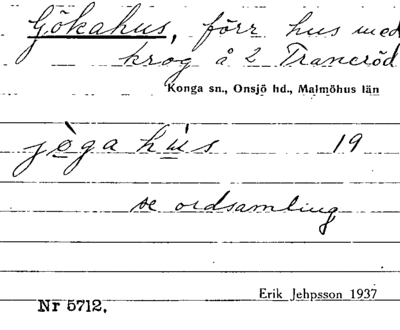 Gökahus, förr hus med
krog å 2 Traneröd
Konga sn., Onsjö hd., Malmöhus län
jògahu̇s 19
se ordsamling
Erik Jehpsson 1937
Nr 5712.